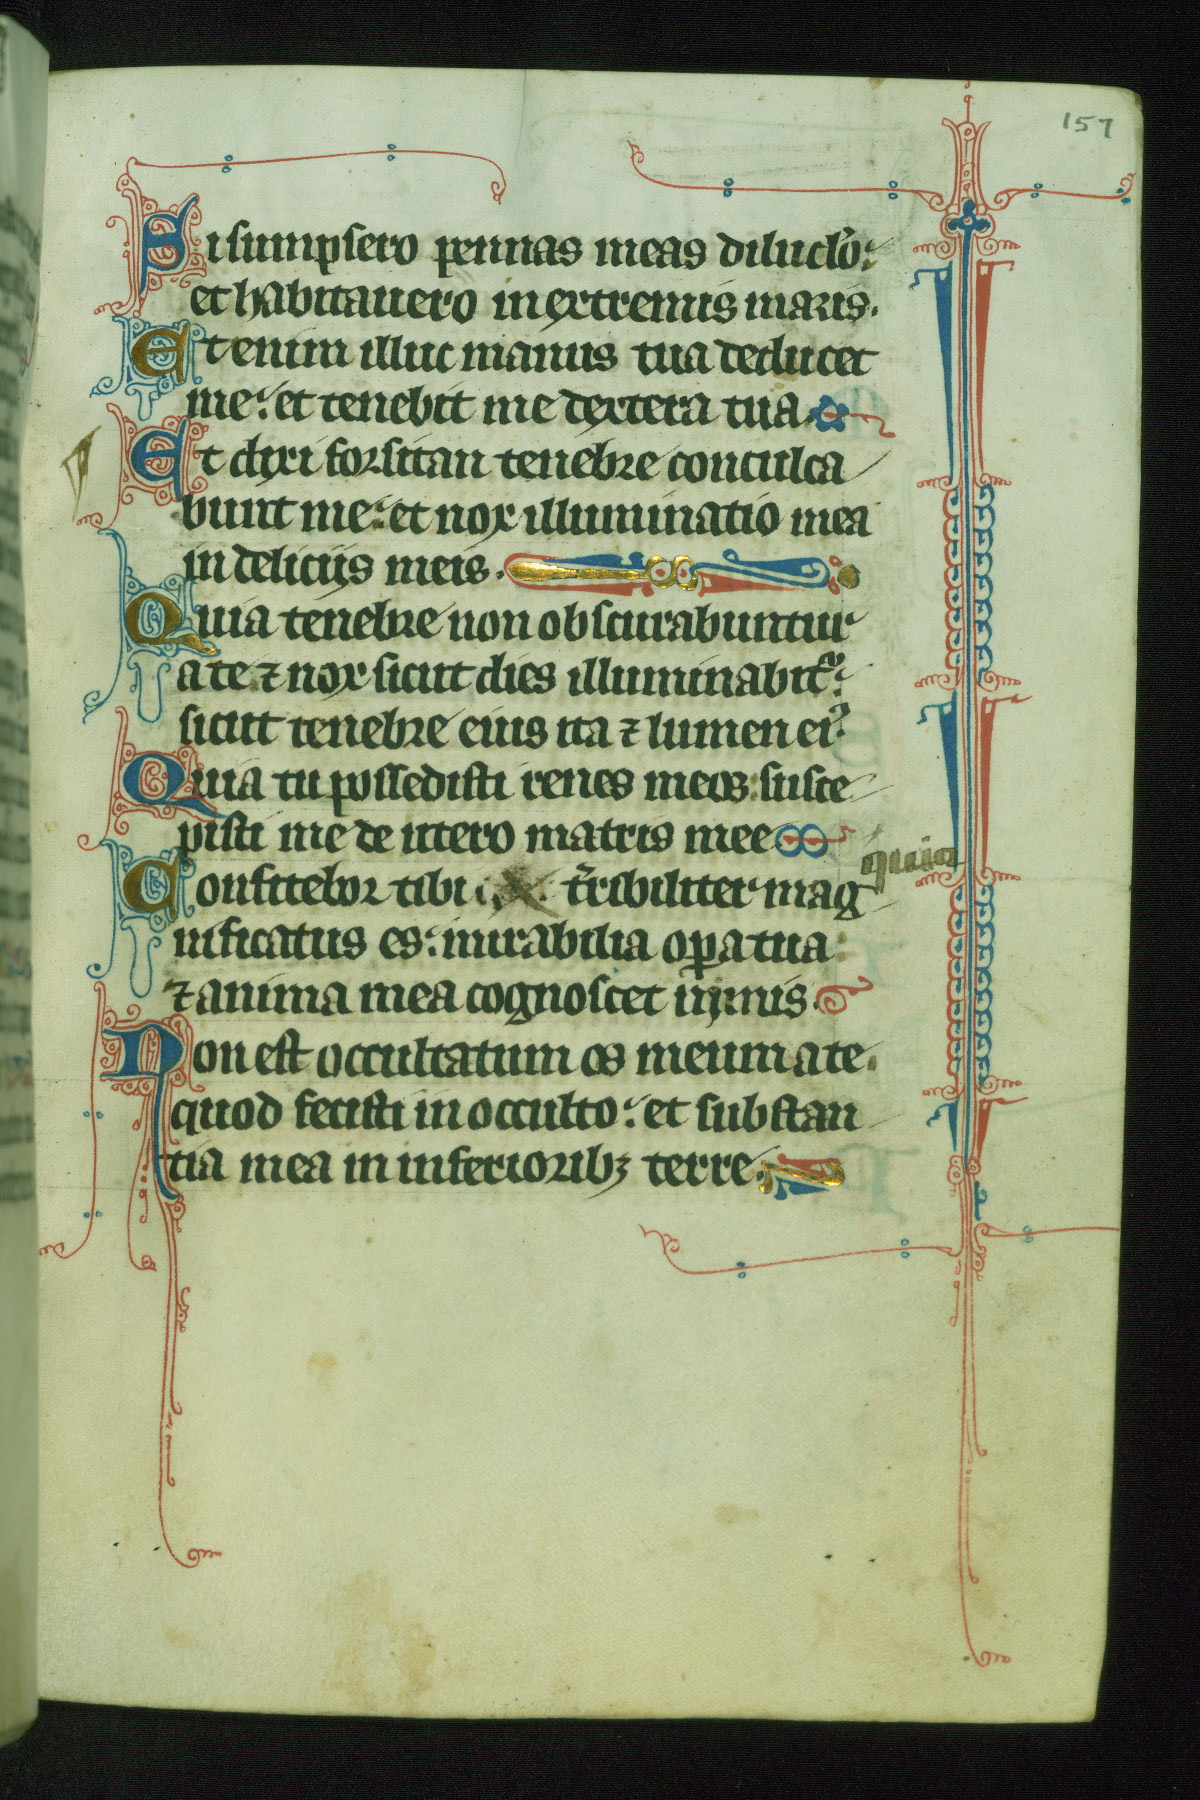 157
Si sumpsero pennas meas diluclo:
et habitauero in extremis maris.
Et enim illuc manus tua deducet
me: et tenebit me dextera tua
Et dixi forsitan tenebre conculca
bunt me: et nox illuminatio mea
in deliciis meis.
Quia tenebre non obscurabuntur
a te ⁊ nox sicut dies illuminabit᷑:
sicut tenebre eius ita ⁊ lumen eiꝰ.
Quia tu possedisti renes meos: susce
pisti me de utero matris mee
Confitebor tibi t̄ribiliter mag
quia
nificatus es: mirabilia oꝑa tua:
⁊ anima mea cognoscet nimis.
Non est occultatum os meum a te.
quod fecisti in occulto: et substan
tia mea in inferioribꝫ terre.